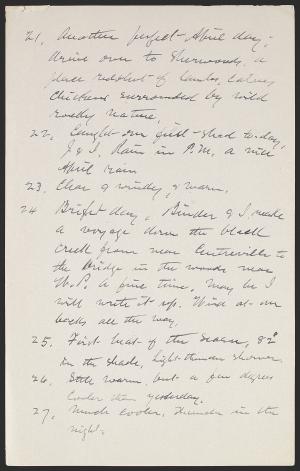 21. Another perfect April day;
drive over to Sherwoods, a
place redolent of lambs, calves,
chickens surrounded by wild
rocky nature.
22. Caught our first shad to-day,
J & I. Rain in P.M. a nice
April rain
23. Clear & windy, & warm.
24 Bright day, Binder & I made
a voyage down the black
creek from near Centreville to
the bridge in the woods near
W.P. A fine time. May be I
will write it up. Wind at our
backs all the way.
25. First heat of the season, 82°
in the shade, light thunder showers.
26. Still warm, but a few degrees
cooler than yesterday.
27. Much cooler, thunder in the
night.